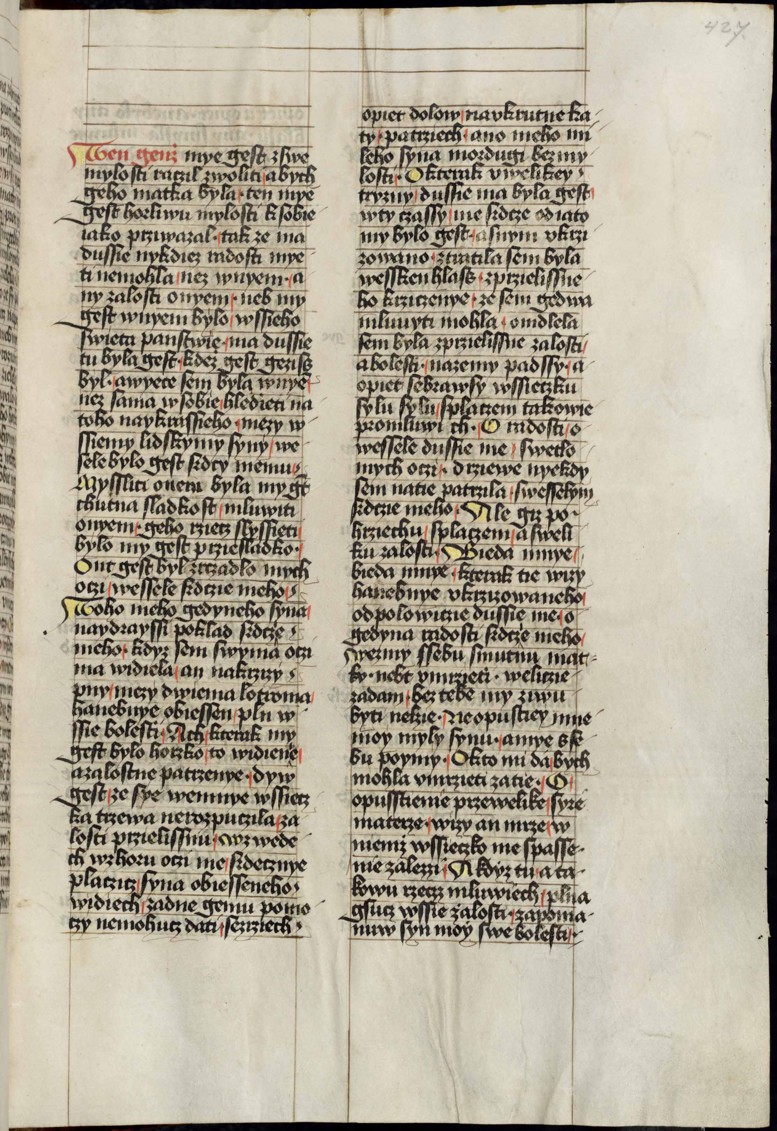 427
Ten genz mye gest zswe
mylosti raczil zwoliti abych
geho matka byla· ten mye
gest horliwu mylosti ksobie
iako przwazal· tak ze ma
dussie nykdiez radosti mye
ti nemohla nez wnyem· a
ny zalosti onyem· neb my
gest wnyem bylo wssieho
swieta panstwie· ma dussie
tu byla gest· kdez gest gezissz
byl· awyece sem byla wnye
nez sama wsobie hledieti na
toho naykrassieho· mezy w
ssiemy lidskymy syny we
sele bylo gest srdcy memu
Myssliti onem byla my gt
chutna sladkost mluwiti
onyem· geho rziecz slysseti
bylo my gest przesladko·
Ont gest byl zrzadlo mych
oczi wessele srdczie meho
Toho meho gedyneho syna
naydrayssi poklad srdcze
meho· kdyz sem swyma oczi
ma widiela an nakrzizy
pny mezy dwiema lotroma
hanebnye obiessen pln w
ssie bolesti· Ach kterak my
gest bylo horzko to widienie
azalostne patrzenye· dyw
gest ze sye wemnye wssiecz
ka trzewa nerozpuczila za
losti przielissnu· wzwede
ch wzhoru oczi me srdecznye
placzicz syna obiesseneho
widiech zadne gemu pomo
czy nemohucz dati· sezrziech
opiet dolow naukrutne ka
ty· patrziech ano meho mi
leho syna mordugi bez my
losti· O kterak vwelikey
tryzny dussie ma byla gest
wty czassy me srdcze odiato
my bylo gest· asnym vkrzi
zowano· ztratila sem byla
wessken hlass· zprzielissne
ho krziczenye· ze sem gedwa
mluwyti mohla· omdlela
sem byla zprzielissne zalosti
abolesti· nazemy padssy· a
opiet sebrawsy wssieczku
sylu sylu splaczem takowie
promluwi ch· O radosti o
wessele dussie me swetlo
mych oczi· drziewe nyekdy
sem natie patrzila swesselym
srdczie meho· Ale giz po·
hrziechu splaczem asweli
ku zalosti· Bieda mnye
bieda mnye· kterak tie wizy
hanebnye vkrizowaneho
odpolowiczie dussie me· o
gedyna radosti srdcze meho
wezmy ssebu smutnu mat
ky· nebt vmrzieti· weliczie
zadam· bez tebe my ziwu
byti nelzie· Neopustiey mne
moy myly synu· amye sse
bu poymy· Okto mi da bych
mohla vmrzieti zatie· O
opusstienie przewelike syre
materze· wizy an mrze w
niemz wssieczko me spasse·
nie zalezzi· A kdyz tu a ta·
kowu rzecz mluwiech plna
gsucz wssie zalosti· zapoma·
nuw syn moy swe bolesti·